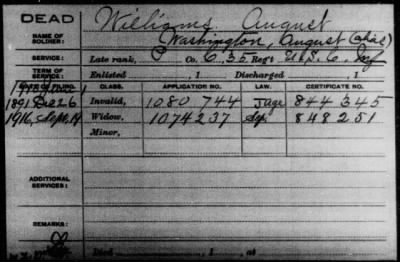 DEAD
NAME OF SOLDIER: Williams August
Washington, August (alias)
SERVICE: Late rank, Co. C. 35 Reg't U.S.C. Inf
TERM OF SERVICE: Enlisted , 1 Discharged , 1
DATE OF FILING. CLASS. APPLICATION NO. LAW. CERTIFICATE NO.
1891 26 Invalid, 1080 744 844 345
1916, Sept. 14 Widow, 1074237 848251
Minor,
ADDITIONAL SERVICES:
REMARKS:
Died , 1 , at